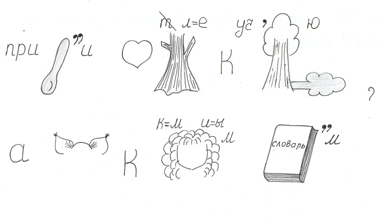 при ,,и т л=е К уч , ю
?
а К к=м и=ы м словарь ,, м